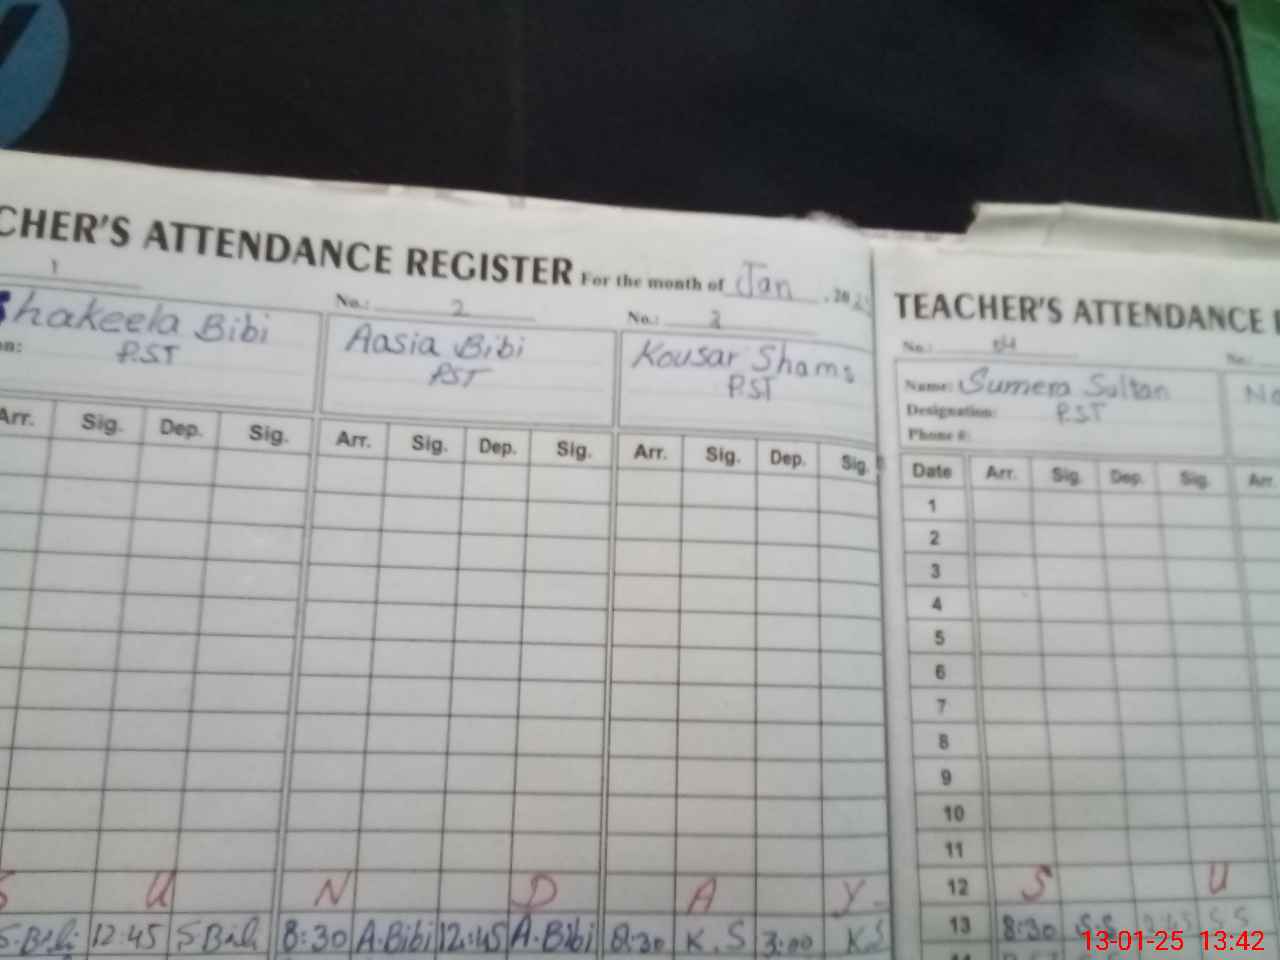 CHER'S ATTENDANCE REGISTER For the month of Jan, 202
1
Shakeela Bibi
on: P.ST
Arr. Sig. Dep. Sig.
No.: 2
Aasia Bibi
PST
Arr. Sig. Dep. Sig.
No.: 3
Kousar Shams
P.ST
Arr. Sig. Dep. Sig.
S U N D A Y
S.Bibi 12:45 S Bibi 8:30 A.Bibi 12:45 A.Bibi 8:30 K.S 3:00 K.S
TEACHER'S ATTENDANCE
No.: 04 No.:
Name: Sumera Sultan
Designation: P.ST
Phone #:
Date Arr. Sig. Dep. Sig. Arr.
1
2
3
4
5
6
7
8
9
10
11
12 S U
13 8:30 S.S S.S
13-01-25 13:42